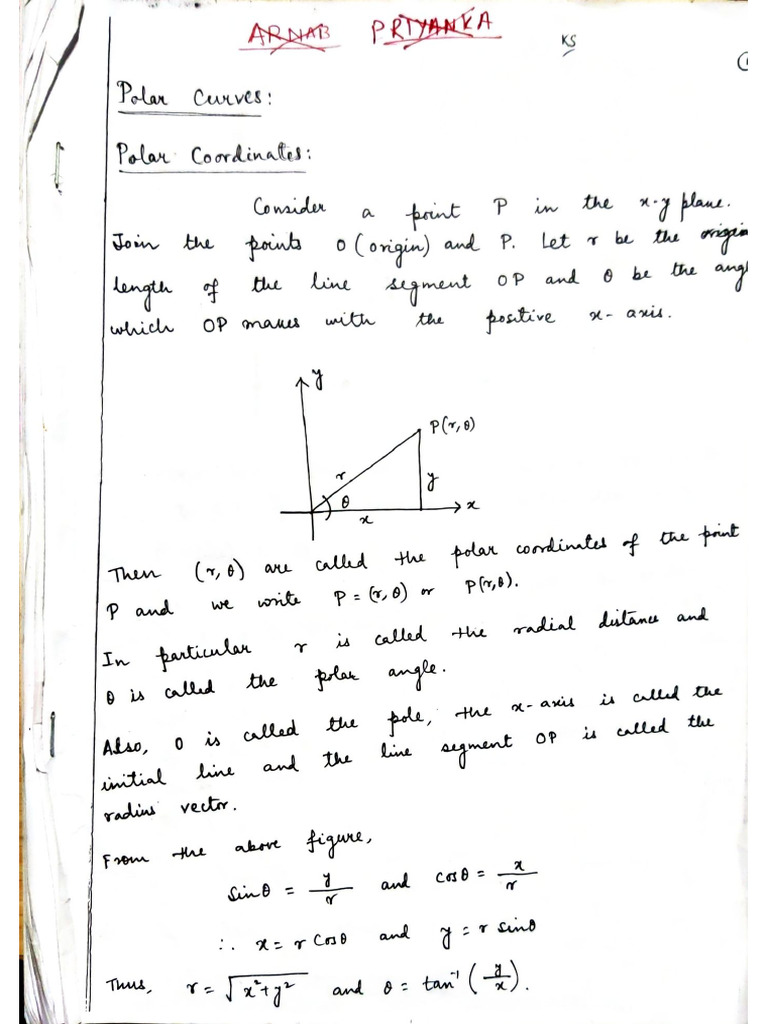 ARNAB PRIYANKA
KS
1
Polar Curves:
Polar Coordinates:
Consider a point P in the x-y plane.
Join the points O (origin) and P. Let r be the origin
length of the line segment OP and θ be the angl
which OP makes with the positive x-axis.
y
P(r, θ)
r
y
θ
x
x
Then (r, θ) are called the polar coordinates of the point
P and we write P = (r, θ) or P(r, θ).
In particular r is called the radial distance and
θ is called the polar angle.
Also, O is called the pole, the x-axis is called the
initial line and the line segment OP is called the
radius vector.
From the above figure,
Sinθ = y/r and Cosθ = x/r
∴ x = r Cosθ and y = r Sinθ
Thus, r = √(x²+y²) and θ = tan⁻¹(y/x).